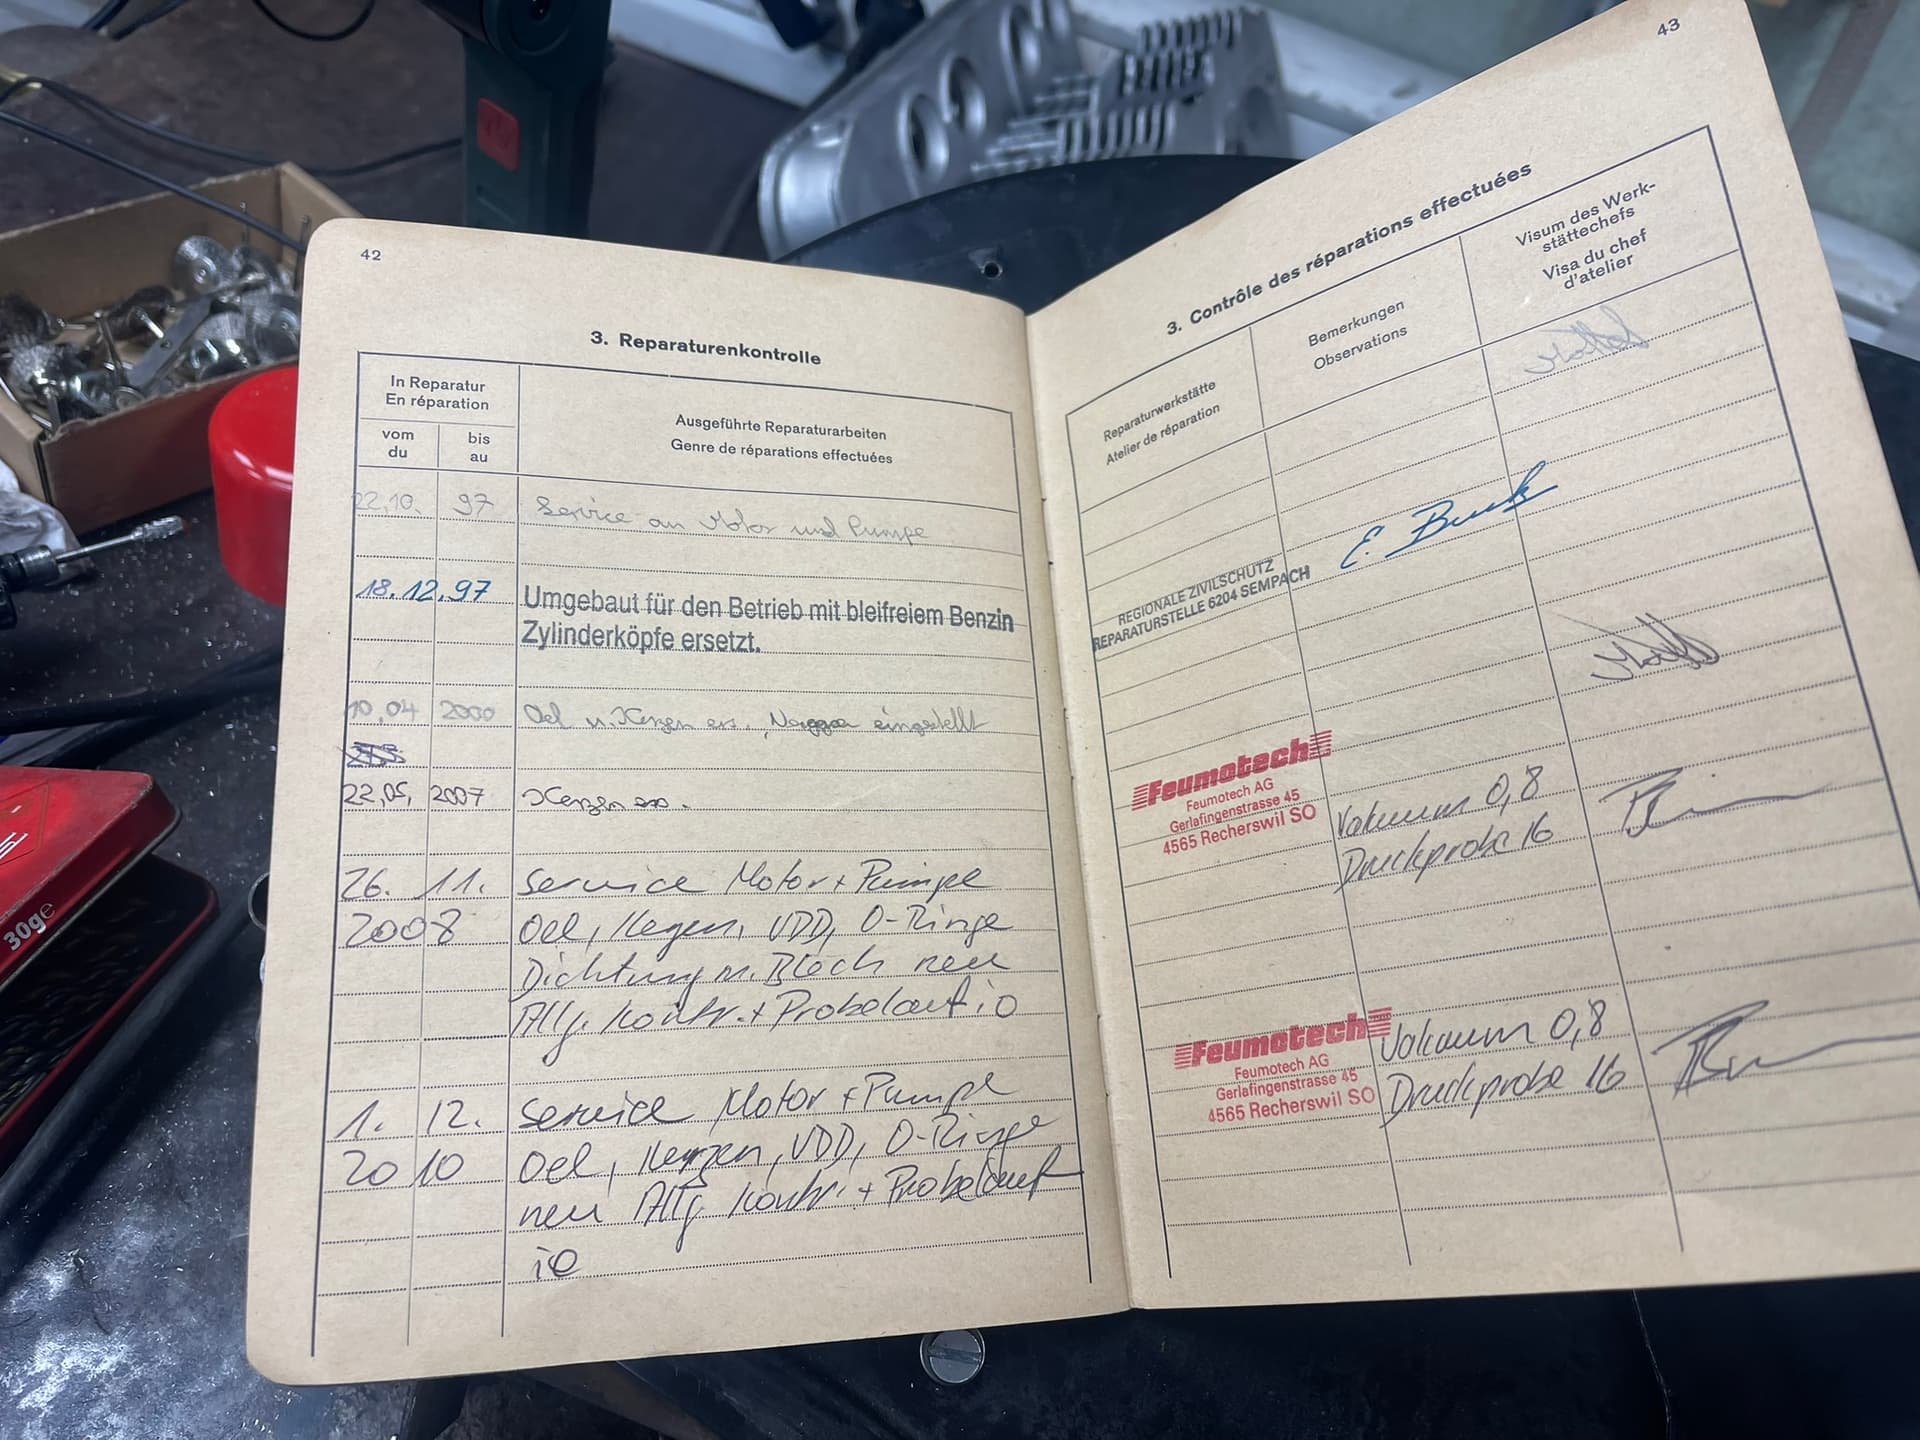 42
3. Reparaturenkontrolle
In Reparatur
En réparation
vom
du
bis
au
Ausgeführte Reparaturarbeiten
Genre de réparations effectuées
22,10. 97 Service an Motor und Pumpe
18.12.97 Umgebaut für den Betrieb mit bleifreiem Benzin
Zylinderköpfe ersetzt.
10,04 2000 Oel u. Kerzen ers., eingestellt
22,05, 2007 Kerzen ers.
26. 11. Service Motor + Pumpe
2008 Oel, Kerzen, VDD, O-Ringe
Dichtung m. Blech neu
Allg. Kontr. + Probelauf io
1. 12. Service Motor + Pumpe
2010 Oel, Kerzen, VDD, O-Ringe
neu Allg. Kontr. + Probelauf
io
43
3. Contrôle des réparations effectuées
Reparaturwerkstätte
Atelier de réparation
Bemerkungen
Observations
Visum des Werk-
stättechefs
Visa du chef
d'atelier
REGIONALE ZIVILSCHUTZ
REPARATURSTELLE 6204 SEMPACH
Feumotech
Feumotech AG
Gerlafingenstrasse 45
4565 Recherswil SO
Vakuum 0,8
Druckprobe 16
Feumotech
Feumotech AG
Gerlafingenstrasse 45
4565 Recherswil SO
Vakuum 0,8
Druckprobe 16
30ge